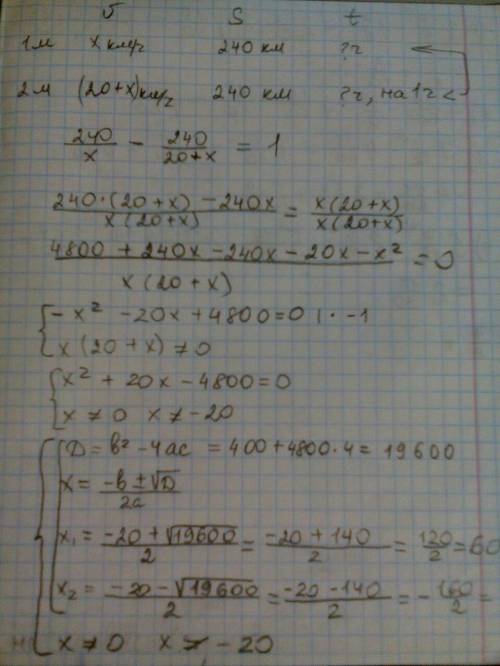 v S t
1м x км/ч 240 км ?ч
2м (20+x)км/ч 240 км ?ч, на 1ч <
240/x − 240/20+x = 1
240·(20+x) − 240x / x(20+x) = x(20+x) / x(20+x)
4800 + 240x − 240x − 20x − x² / x(20+x) = 0
−x² − 20x + 4800 = 0 | · −1
x(20+x) ≠ 0
x² + 20x − 4800 = 0
x ≠ 0 x ≠ −20
D = b² − 4ac = 400 + 4800·4 = 19600
x = −b ± √D / 2a
x₁ = −20 + √19600 / 2 = −20 + 140 / 2 = 120/2 = 60
x₂ = −20 − √19600 / 2 = −20 − 140 / 2 = −160/2 =
x ≠ 0 x ≠ −20